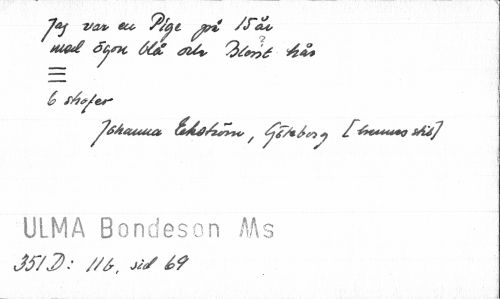 Jag var en Pige på 15 år
med ögon blå och Blont hår
?
6 strofer
Johanna Ekström, Göteborg [hennes stil]
ULMA Bondeson Ms
351 D: 116, sid 69